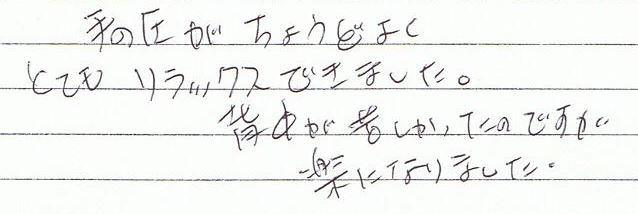 手の圧がちょうどよく
とても リラックスできました。
背中が苦しかったのですが
楽になりました.